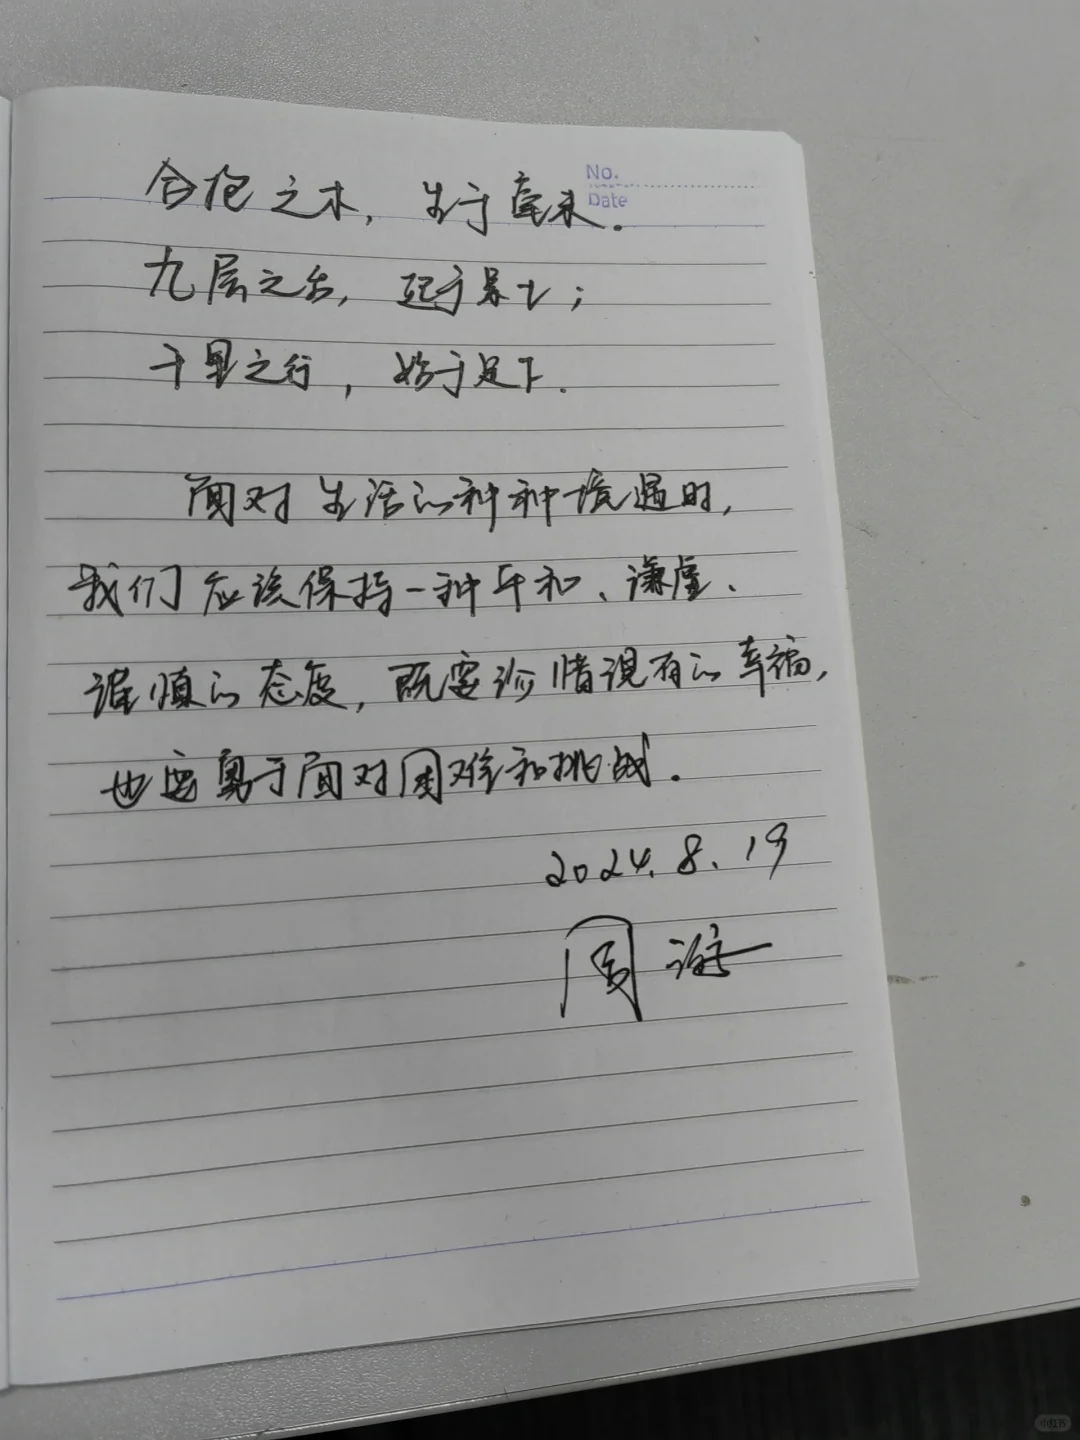 No.
Date
合抱之木，生于毫末.
九层之台，起于累土；
千里之行，始于足下.
面对生活的种种境遇时，
我们应该保持一种平和、谦虚、
谨慎的态度，既要珍惜现有的幸福，
也要勇于面对困难和挑战.
2024.8.19
周
小红书